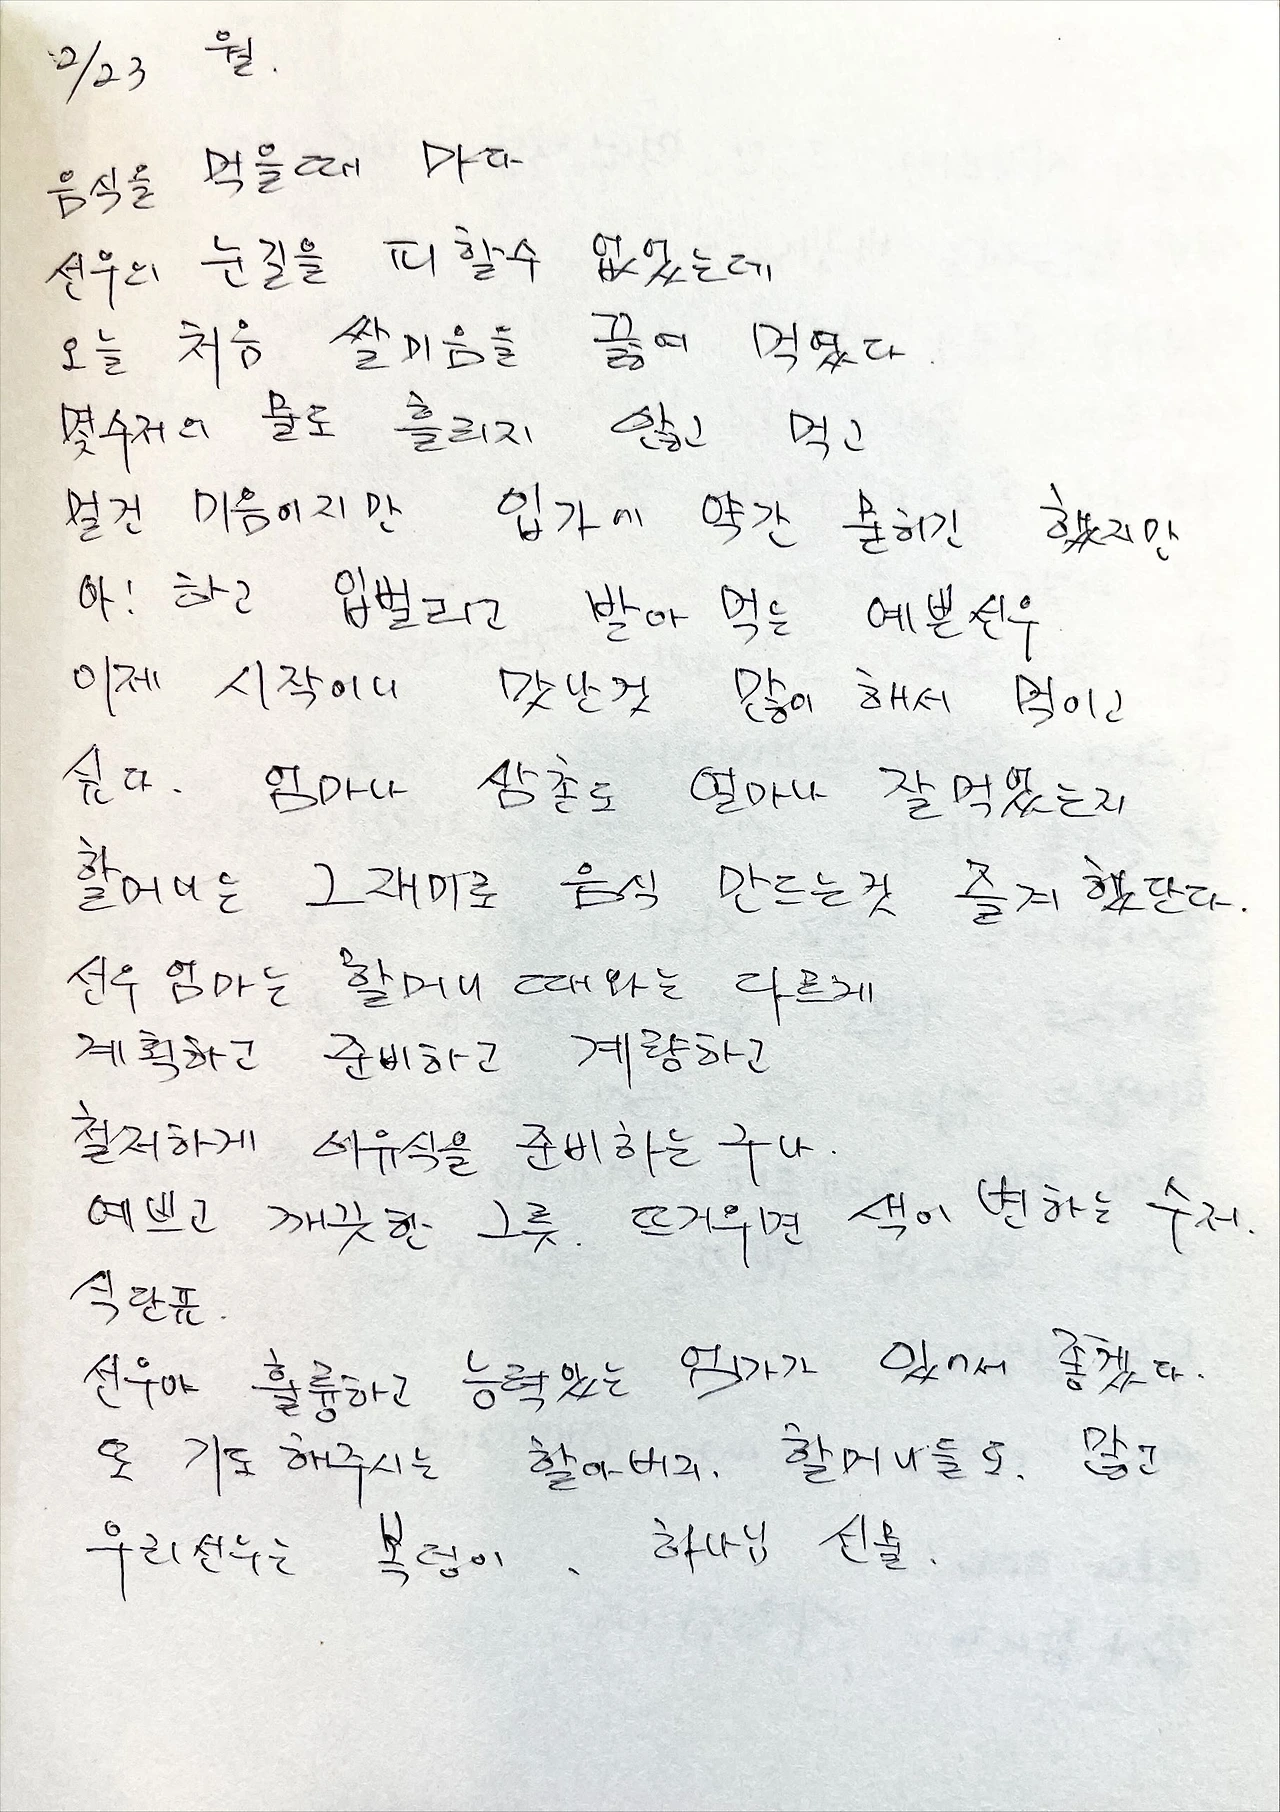 2/23 월.
음식을 먹을때 마다
선우의 눈길을 피할수 없었는데
오늘 처음 쌀미음을 끓여 먹였다.
몇수저의 물도 흘리지 않고 먹고
멀건 미음이지만 입가에 약간 묻히긴 했지만
아! 하고 입벌리고 받아 먹는 예쁜선우
이제 시작이니 맛난것 많이 해서 먹이고
싶다. 엄마나 삼촌도 얼마나 잘먹었는지
할머니는 그재미로 음식 만드는것 즐겨했단다.
선우엄마는 할머니 때와는 다르게
계획하고 준비하고 계량하고
철저하게 이유식을 준비하는구나.
예쁘고 깨끗한 그릇. 뜨거우면 색이 변하는 수저.
식단표.
선우야 훌륭하고 능력있는 엄마가 있어서 좋겠다.
또 기도해주시는 할아버지. 할머니들도. 많고
우리선우는 복덩이, 하나님 선물.